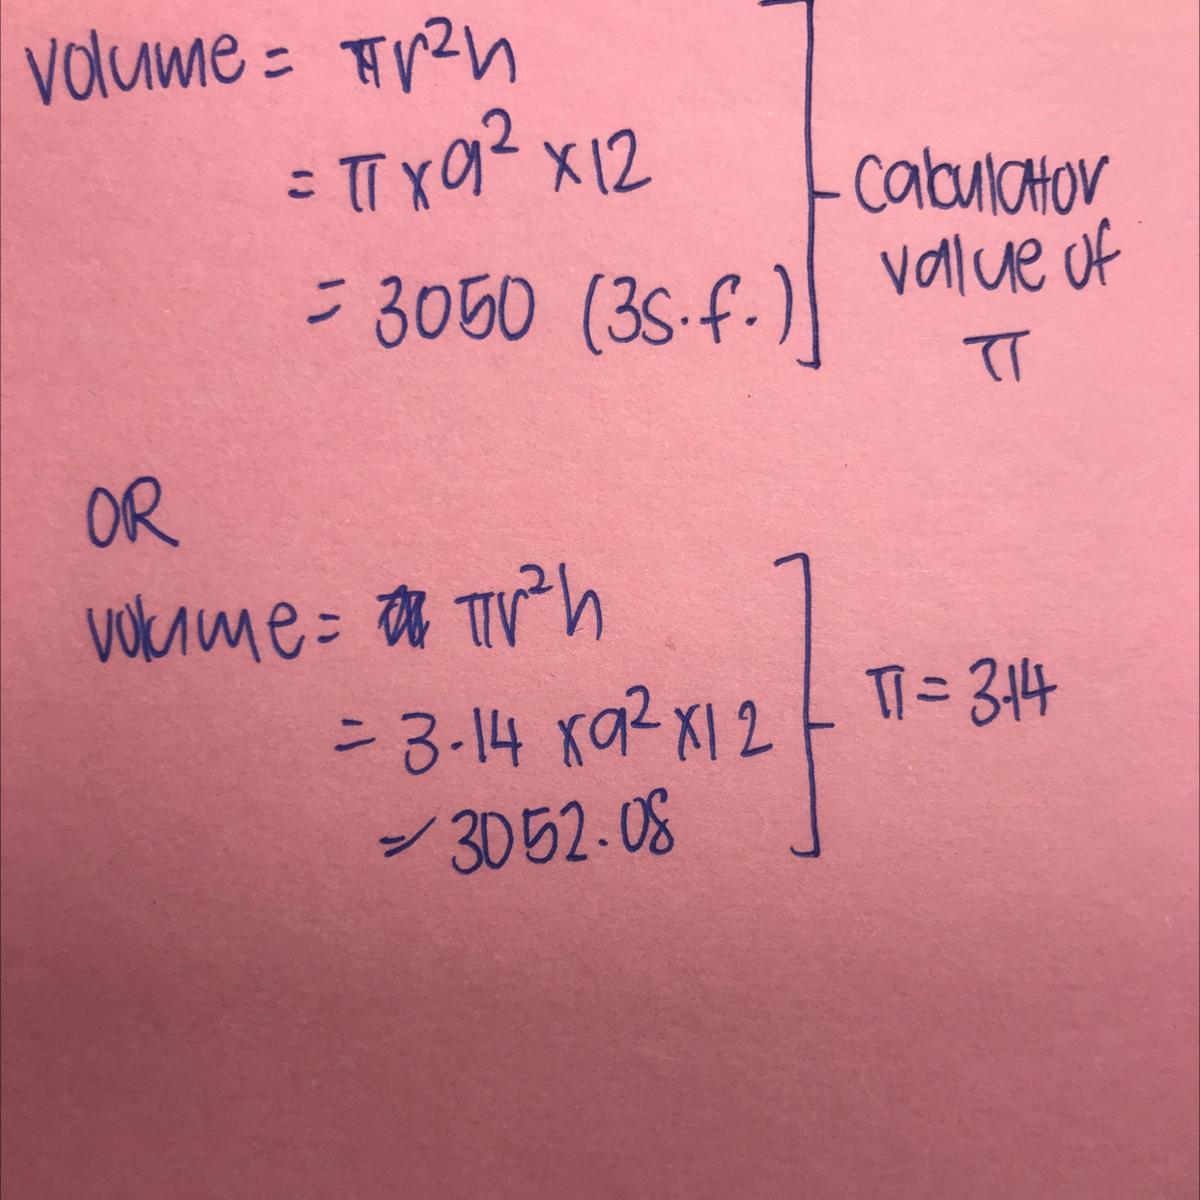 volume = πr²h
= π x 9² x 12
= 3050 (3s.f.)
calculator
value of
π
OR
volume = πr²h
= 3.14 x 9² x 12
= 3052.08
π = 3.14